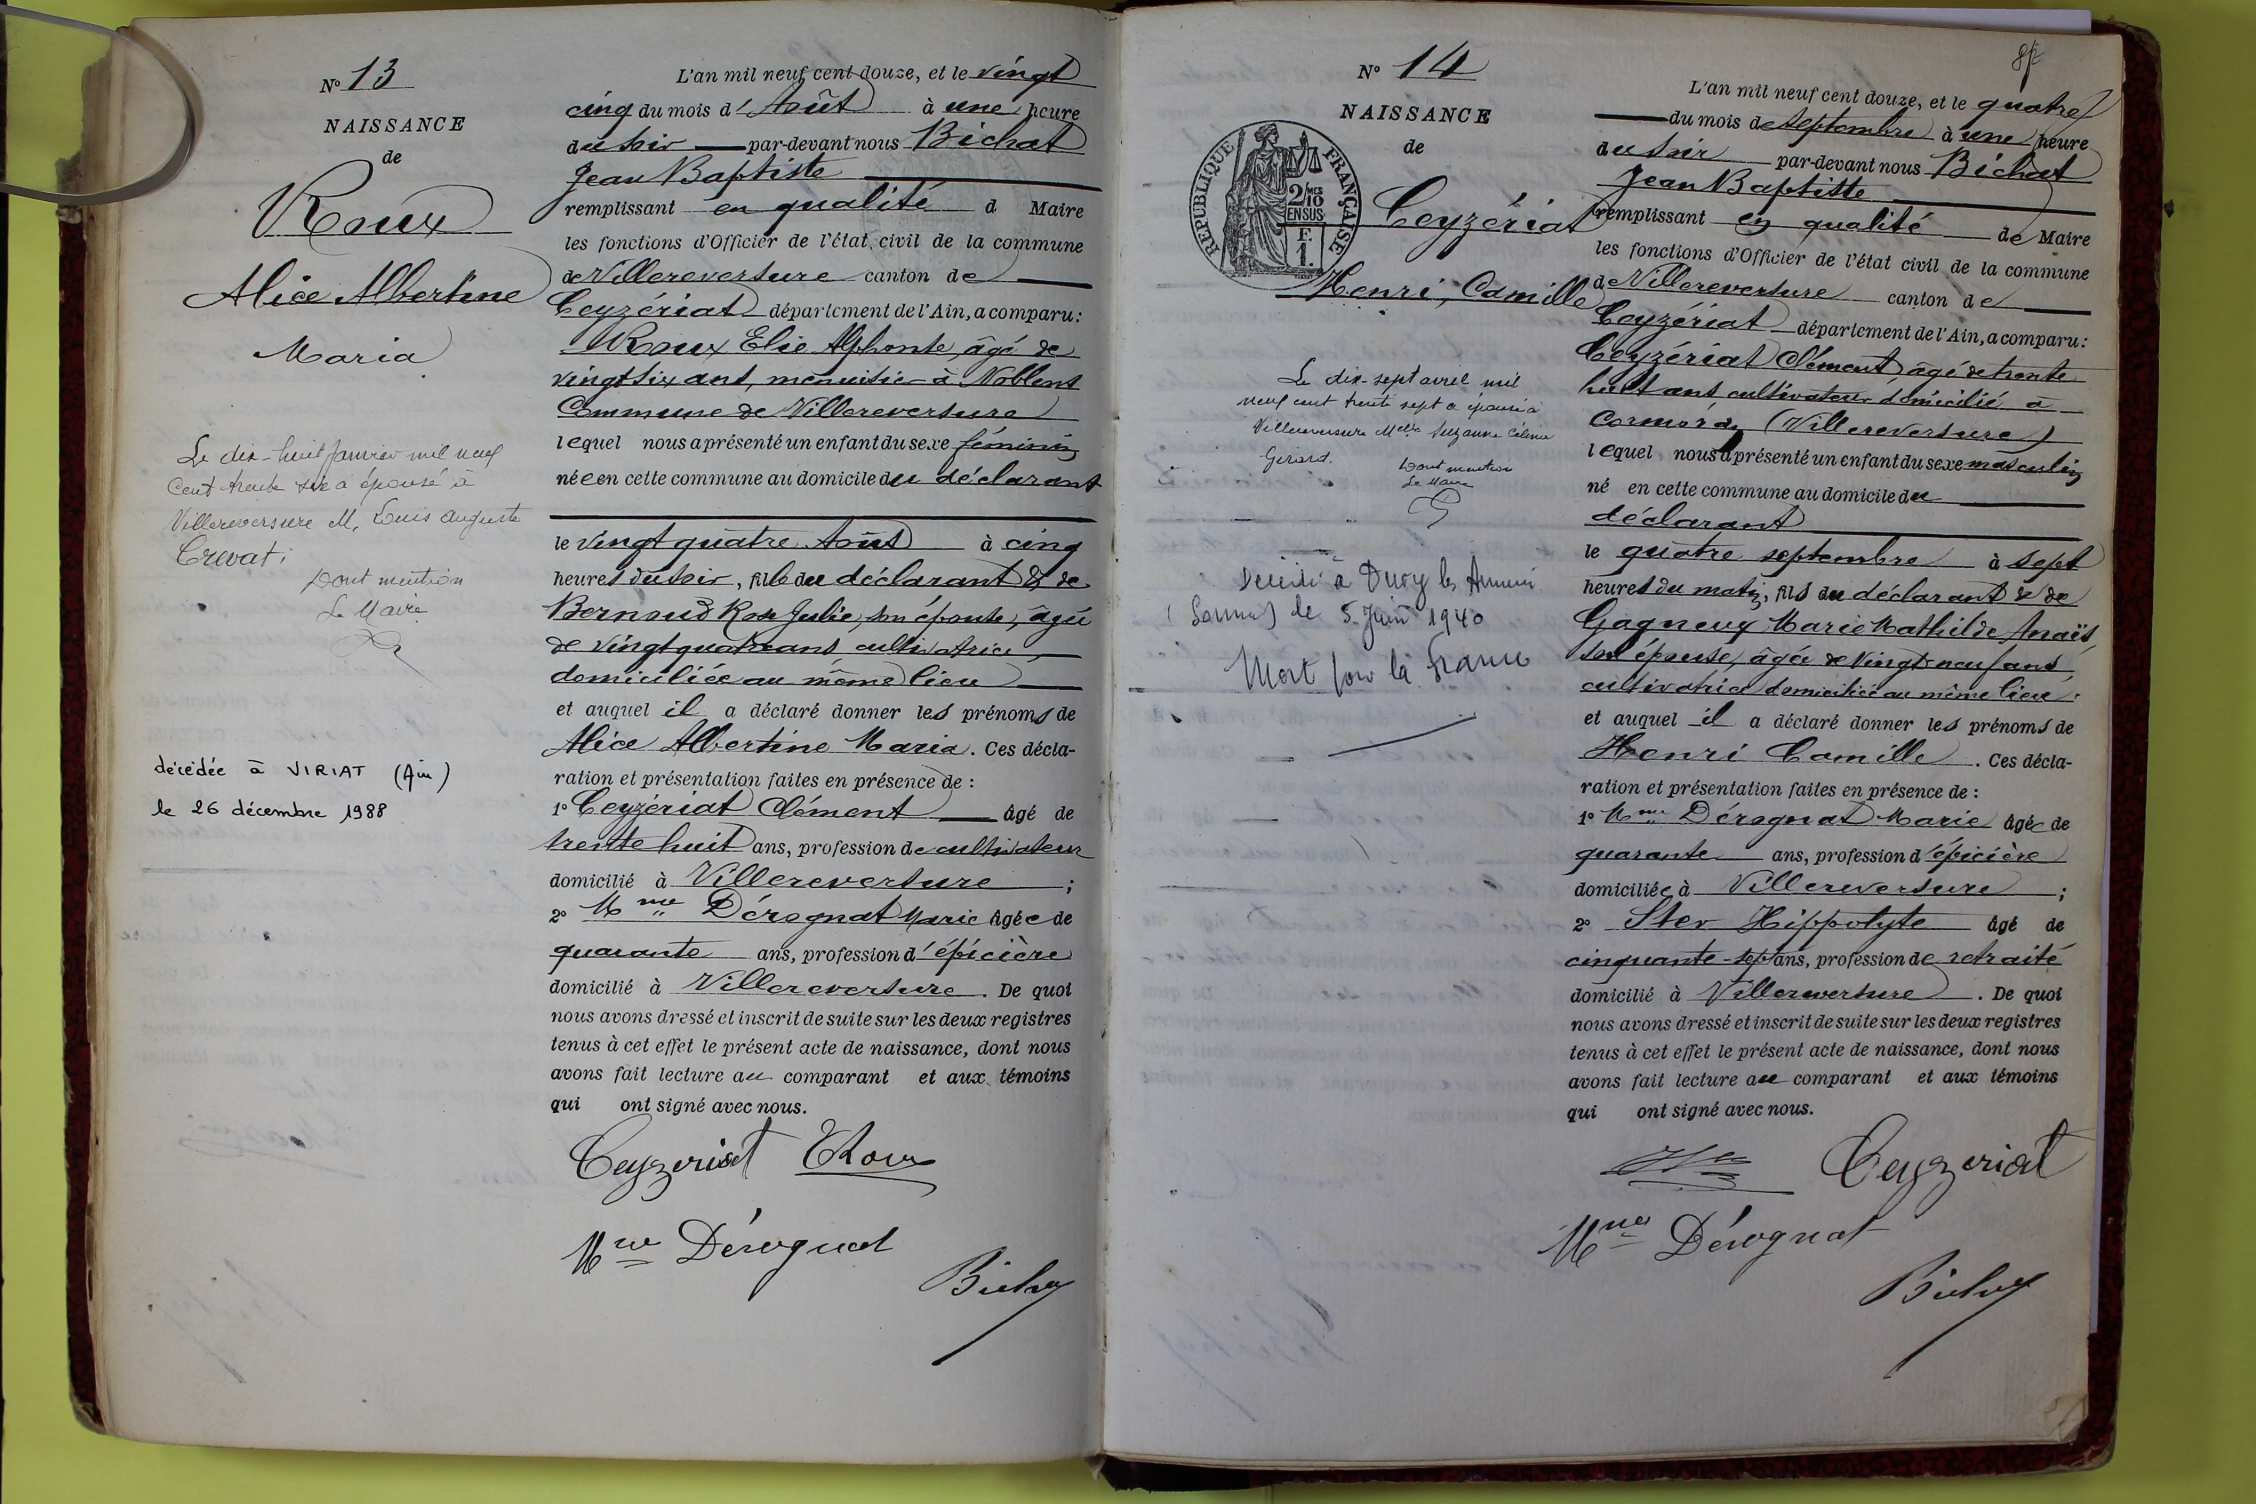 N° 13
NAISSANCE
de
Roux
Alice Albertine
Maria
Le dix-huit Janvier mil neuf
Cent trente six a épousé à
Villereversure M. Louis Auguste
Crevat.
Dont mention
Le Maire
décédée à VIRIAT (Ain)
le 26 décembre 1988
L'an mil neuf cent douze, et le vingt
cinq du mois d'Août à une heure
du soir par-devant nous Bichat
Jean Baptiste
remplissant en qualité d Maire
les fonctions d'Officier de l'état civil de la commune
de Villereversure canton de
Ceyzériat département de l'Ain, a comparu:
Roux Elie Alphonse, âgé de
vingt six ans, menuisier à Noblens
Commune de Villereversure
lequel nous a présenté un enfant du sexe féminin
née en cette commune au domicile du déclarant
le vingt quatre Août à cinq
heures du soir, fille du déclarant & de
Bernoud Rose Julie, son épouse, âgée
de vingt quatre ans cultivatrice,
domiciliée au même lieu
et auquel il a déclaré donner les prénoms de
Alice Albertine Maria. Ces décla-
ration et présentation faites en présence de :
1° Ceyzériat Clément âgé de
trente huit ans, profession de cultivateur
domicilié à Villereversure ;
2° Mme Dérognat Marie âgée de
quarante ans, profession d'épicière
domicilié à Villereversure. De quoi
nous avons dressé et inscrit de suite sur les deux registres
tenus à cet effet le présent acte de naissance, dont nous
avons fait lecture au comparant et aux témoins
qui ont signé avec nous.
Ceyzeriat Roux
Mme Dérognat
Bichat
N° 14
NAISSANCE
de
REPUBLIQUE FRANÇAISE
2/10 MES
EN SUS
F.
1.
Ceyzériat
Henri, Camille
Le dix-sept avril mil
neuf cent trente sept a épousé à
Villereversure Melle Suzanne Célina
Gerard.
Dont mention
Le Maire
Décédé à Dury les Amiens
(Somme) le 5 Juin 1940
Mort pour la France
L'an mil neuf cent douze, et le quatre
du mois de septembre à une heure
du soir par-devant nous Bichat
Jean Baptiste
remplissant en qualité de Maire
les fonctions d'Officier de l'état civil de la commune
de Villereversure canton de
Ceyzériat département de l'Ain, a comparu:
Ceyzériat Clément âgé de trente
huit ans cultivateur domicilié à
Cormoz (Villereversure)
lequel nous a présenté un enfant du sexe masculin
né en cette commune au domicile du
déclarant
le quatre septembre à sept
heures du matin, fils du déclarant & de
Gagneux Marie Mathilde Anaïs,
son épouse, âgée de vingt-neuf ans,
cultivatrice domiciliée au même lieu.
et auquel il a déclaré donner les prénoms de
Henri Camille. Ces décla-
ration et présentation faites en présence de :
1° Mme Dérognat Marie âgée de
quarante ans, profession d'épicière
domiciliée à Villereversure ;
2° Ster Hippolyte âgé de
cinquante-sept ans, profession de retraité
domicilié à Villereversure. De quoi
nous avons dressé et inscrit de suite sur les deux registres
tenus à cet effet le présent acte de naissance, dont nous
avons fait lecture au comparant et aux témoins
qui ont signé avec nous.
Ceyzeriat
Mme Dérognat
Bichat